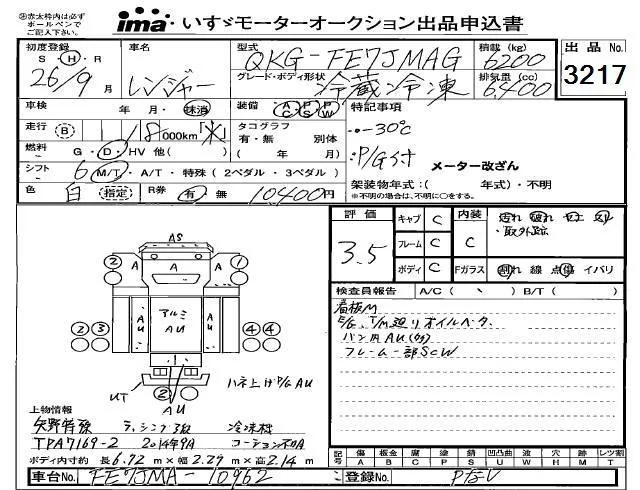 ◎赤太枠内は必ず ボールペンで ご記入下さい。
ima いすゞモーターオークション出品申込書
初度登録 S・H・R 26/9月
車名 レンジャー
型式 QKG-FE7JMAG
積載 (kg) 6200
出品 No. 3217
グレード・ボディ形状 冷蔵冷凍
排気量 (cc) 6,400
車検 年・月・抹消
装備 AC PS PW
特記事項
-30℃
走行 B 118000km
タコグラフ 有・無 別体 ( 年/ 月)
P/G付
メーター改ざん
燃料 G・D・HV 他( )
シフト 6 M/T・A/T・特殊 (2ペダル・3ペダル)
架装物年式:( 年式)・不明
※不明の場合は、不明に○をする。
色 白 (指定) R券 有・無 10400円
評価 3.5
キャブ C 内装 C
フレーム C
ボディ C Fガラス 割れ 線 点 傷 イバリ
汚れ 破れ
・取外跡
検査員報告 A/C ( 、 ) B/T ( )
看板M
E/G、T/M廻りオイルベタ
バン用AU(多)
フレーム一部SCW
AS
② A A ①
A
②③ AU アルミ AU AU ④④
UT ② AU
ハネ上げP/G AU
上物情報
矢野特殊 ラッシング3段 冷凍機
TPA7169-2 2014年9A コーション不明A
ボディ内寸約 長 6.72 m × 幅 2.29 m × 高 2.14 m
記号 傷 A 板金 B 腐 C 塗 P 錆 S 凹凸曲 U 波 W 穴 H 跡 M レツ割 T
車台No. FE7JMA-10962
登録No.